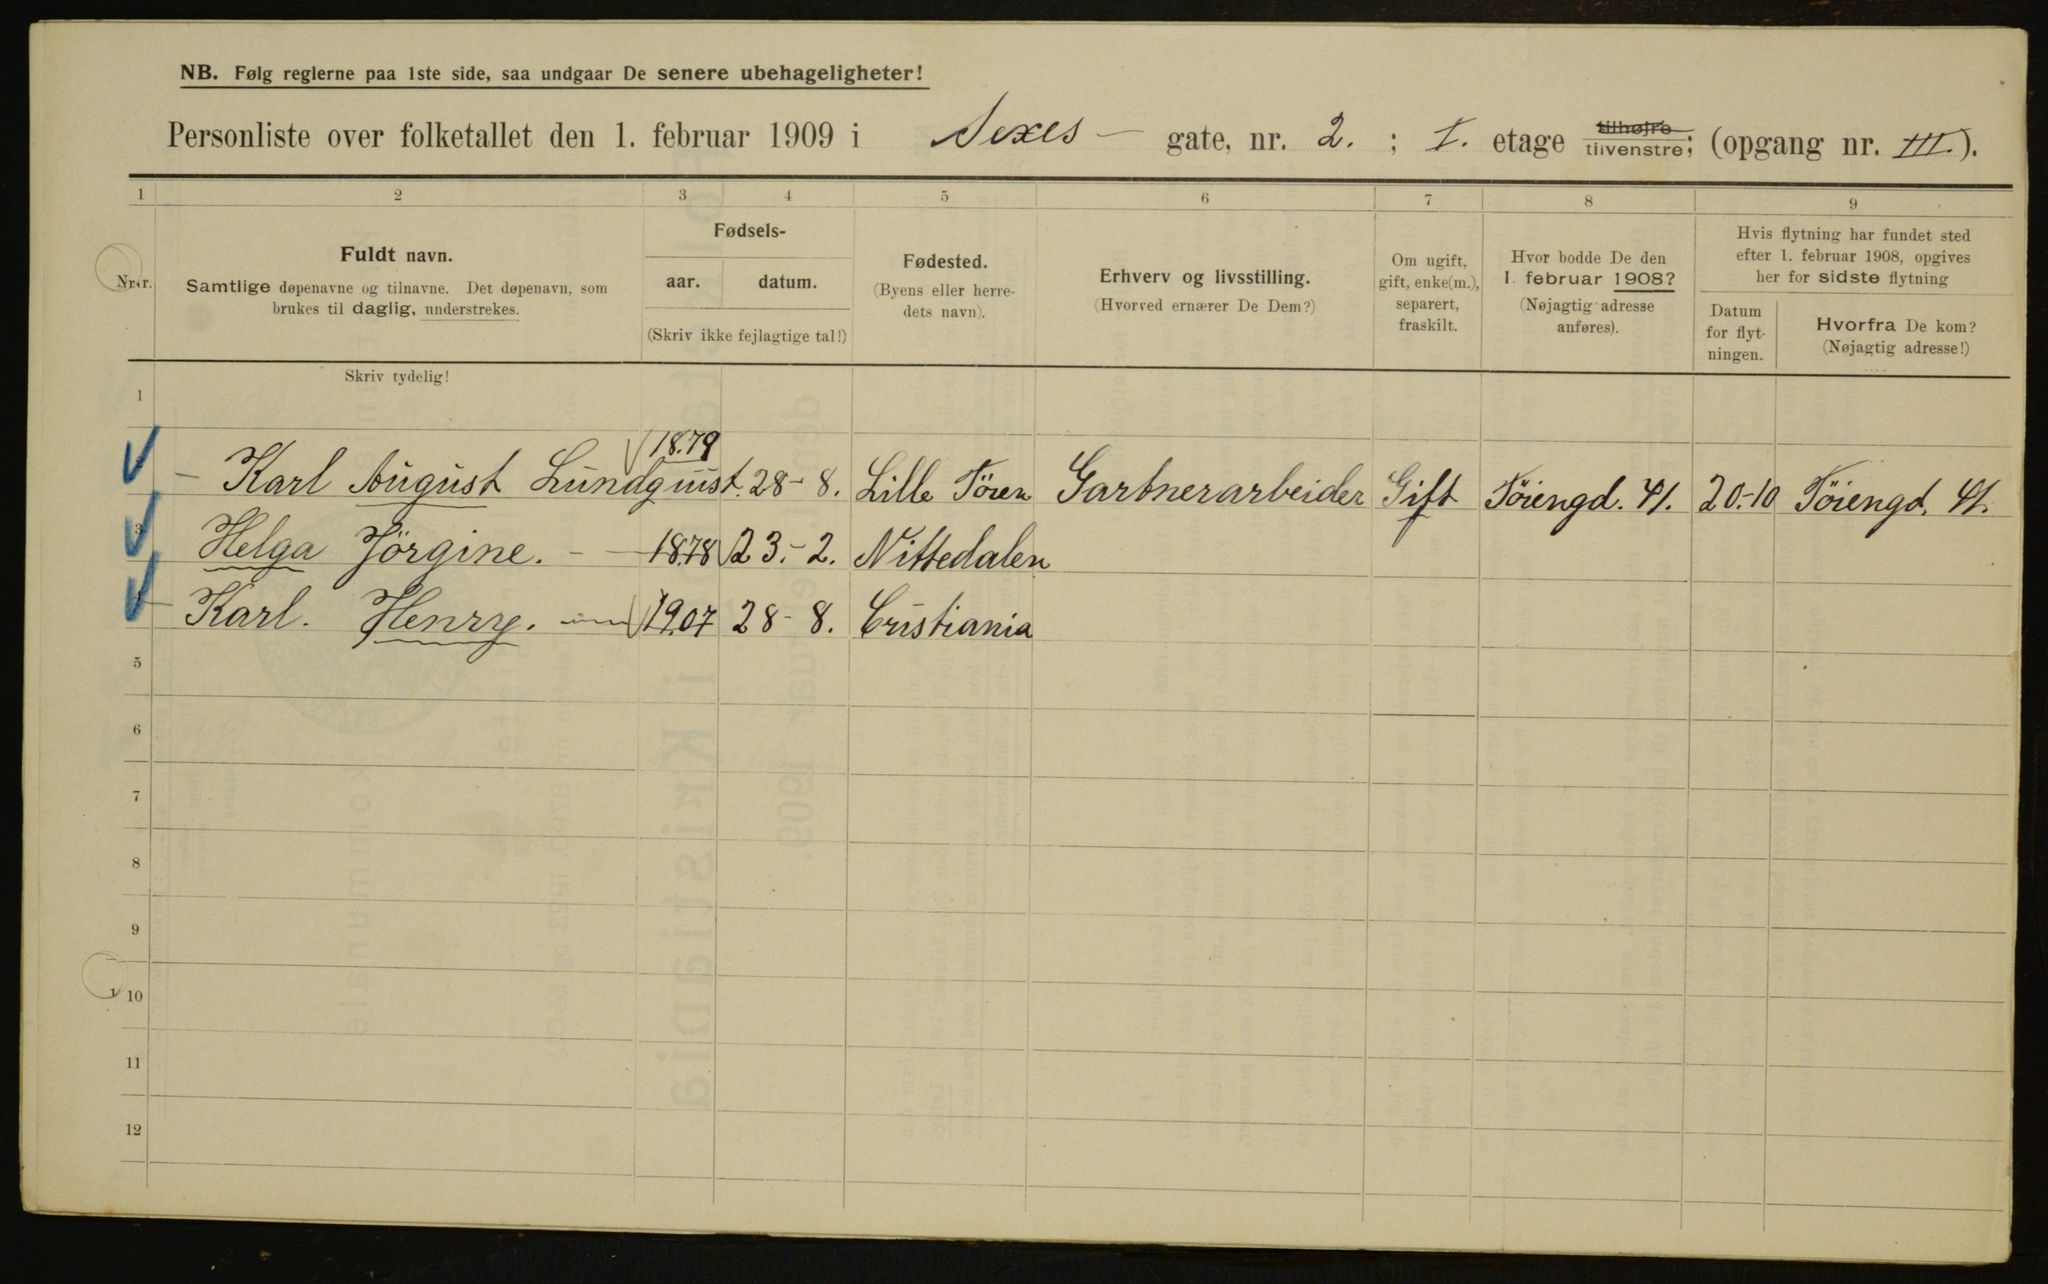 NB. Følg reglerne paa 1ste side, saa undgaar De senere ubehageligheter!
Personliste over folketallet den 1. februar 1909 i Sexes - gate, nr. 2. ; I. etage tilhøjre tilvenstre; (opgang nr. III.).
1 2 3 4 5 6 7 8 9
Nr.
Fuldt navn.
Samtlige døpenavne og tilnavne. Det døpenavn, som
brukes til daglig, understrekes.
Fødsels-
aar. datum.
(Skriv ikke fejlagtige tal!)
Fødested.
(Byens eller herre-
dets navn).
Erhverv og livsstilling.
(Hvorved ernærer De Dem?)
Om ugift,
gift, enke(m.),
separert,
fraskilt.
Hvor bodde De den
1. februar 1908?
(Nøjagtig adresse
anføres).
Hvis flytning har fundet sted
efter 1. februar 1908, opgives
her for sidste flytning
Datum
for flyt-
ningen.
Hvorfra De kom?
(Nøjagtig adresse!)
Skriv tydelig!
1
- Karl August Lundquist. 1879 28-8. Lille Töien Gartnerarbeider Gift Töiengd. 41. 20.-10 Töiengd. 41.
3 Helga Jörgine. - - 1878 23.-2. Nittedalen
Karl. Henry. - 1907 28-8. Cristiania
5
6
7
8
9
10
11
12